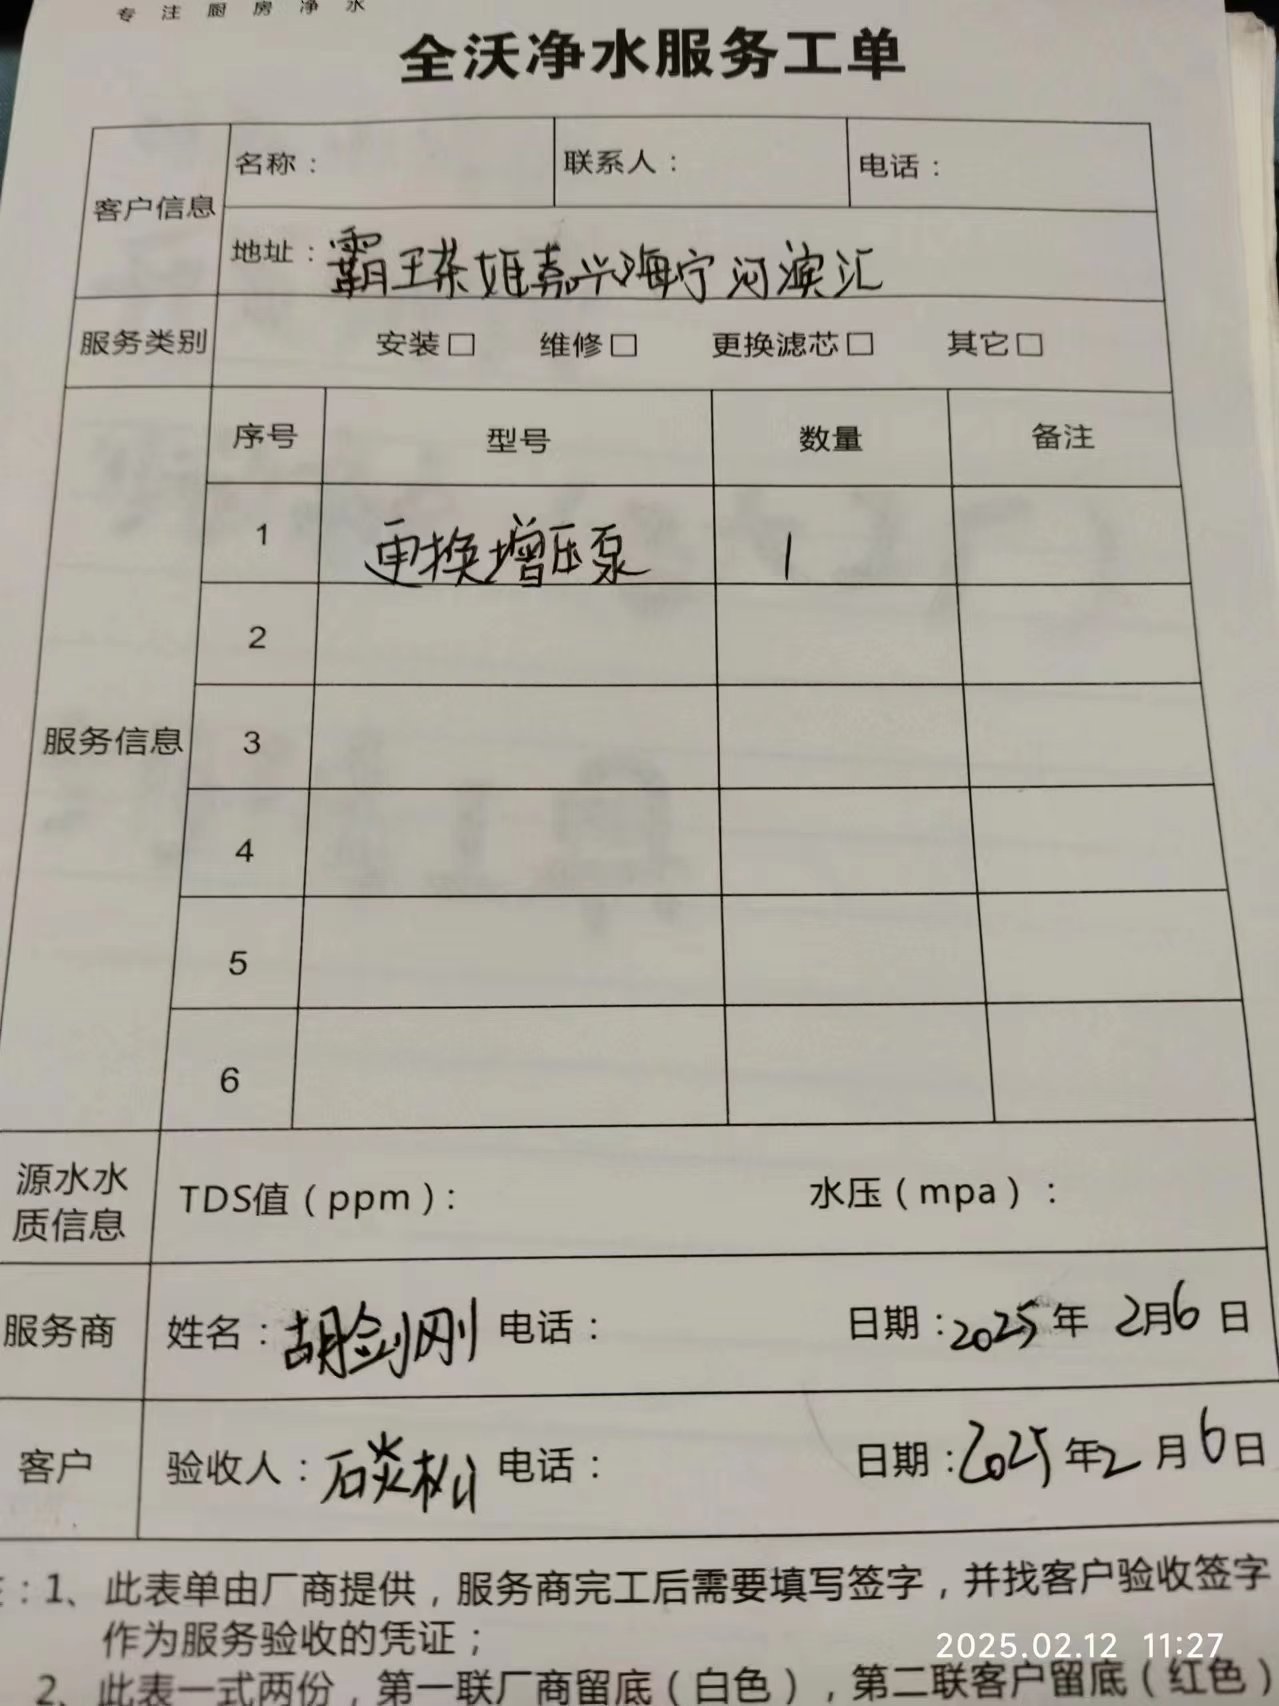 专注厨房净水
全沃净水服务工单
客户信息 名称： 联系人： 电话：
地址：霸王茶姬嘉兴海宁河滨汇
服务类别 安装□ 维修□ 更换滤芯□ 其它□
服务信息
序号 型号 数量 备注
1 更换增压泵 1
2
3
4
5
6
源水水
质信息
TDS值（ppm）： 水压（mpa）：
服务商 姓名：胡剑刚 电话： 日期：2025年2月6日
客户 验收人：石焱松 电话： 日期：2025年2月6日
：1、此表单由厂商提供，服务商完工后需要填写签字，并找客户验收签字
作为服务验收的凭证；
2、此表一式两份，第一联厂商留底（白色），第二联客户留底（红色）
2025.02.12 11:27